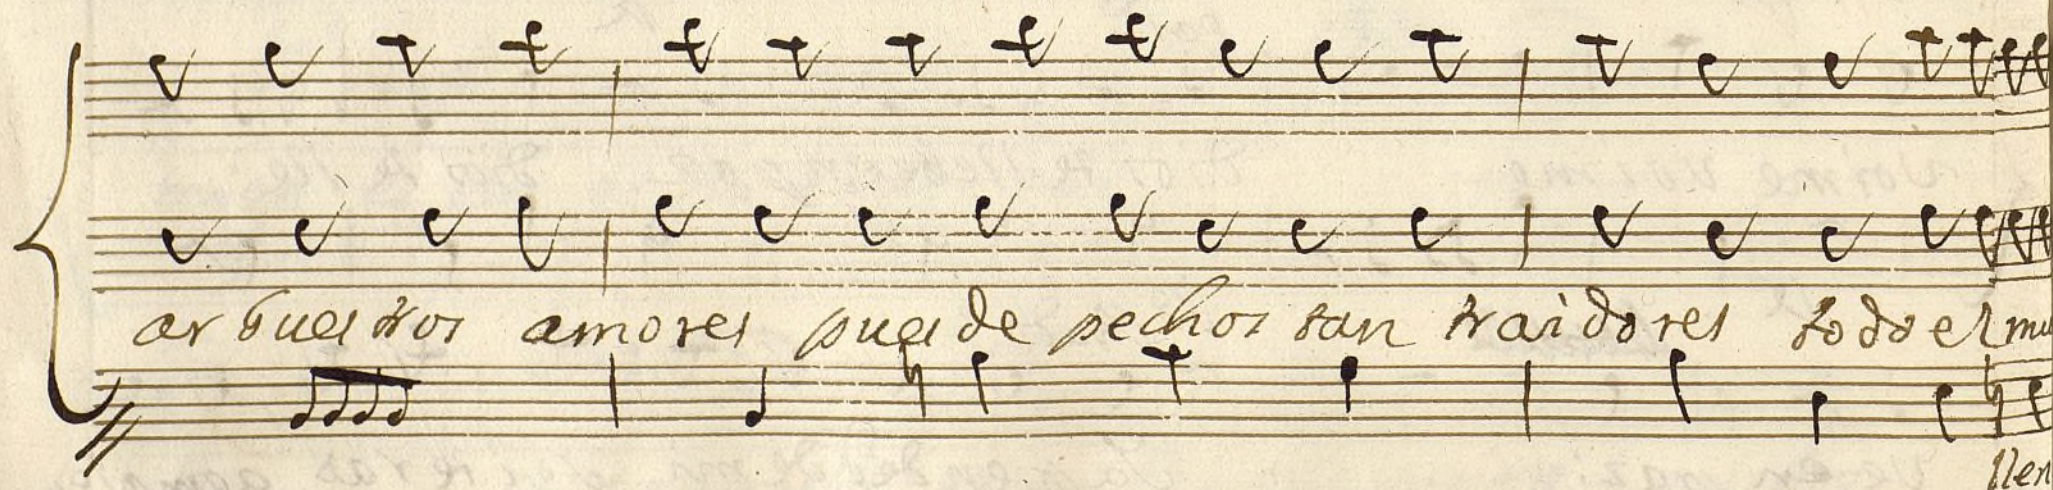 ar buestros amores pues de pechos tan traidores todo el mu
llen